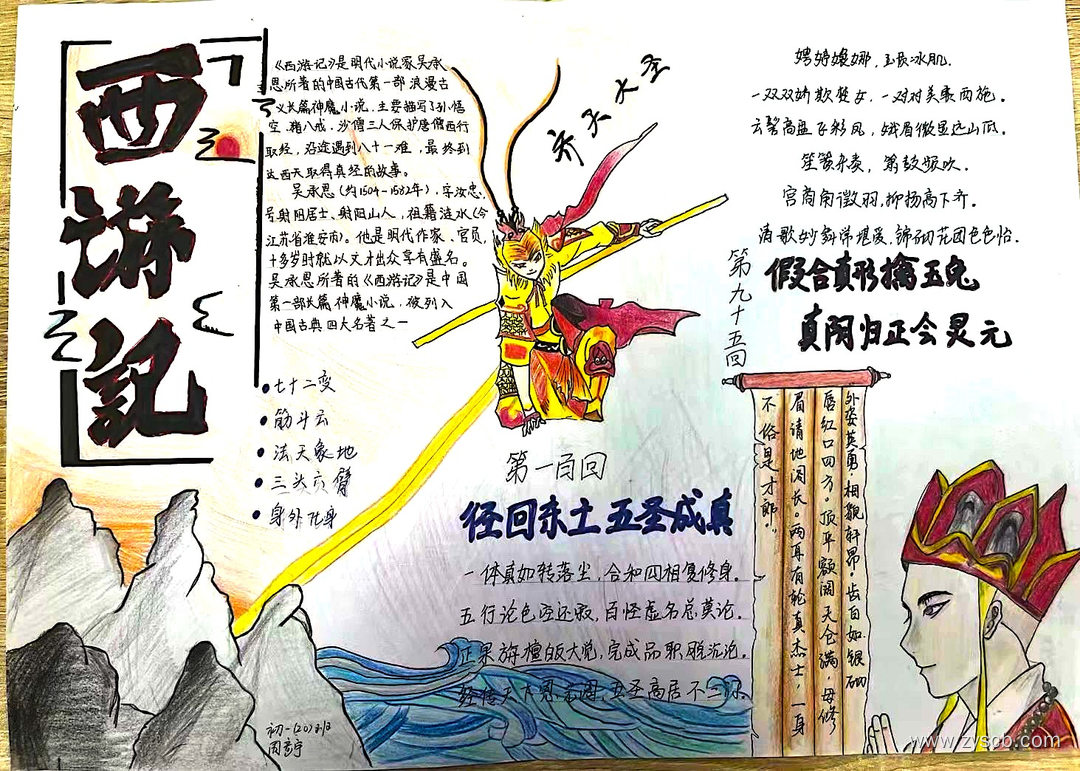 西游記
《西游记》是明代小说家吴承
恩所著的中国古代第一部浪漫古
义长篇神魔小说,主要描写了孙悟
空、猪八戒、沙僧三人保护唐僧西行
取经,沿途遇到八十一难,最终到
达西天取得真经的故事。
吴承恩(约1504-1582年),字汝忠,
号射阳居士、射阳山人,祖籍涟水(今
江苏省淮安市)。他是明代作家、官员,
十多岁时就以文才出众享有盛名。
吴承恩所著的《西游记》是中国
第一部长篇神魔小说,被列入
中国古典四大名著之一
•七十二变
•筋斗云
•法天象地
•三头六臂
•身外化身
齐天大圣
第一百回
径回东土 五圣成真
一体真如转落尘,合和四相复修身。
五行论色空还寂,百怪虚名总莫论。
正果旃檀皈大觉,完成品职脱沉沦。
经传天下恩 五圣高居不二
娉婷嬝娜,玉 冰肌。
一双双娇欺楚女,一对对美赛西施。
云髻高盘飞彩凤,娥眉微显远山低。
笙簧杂奏,箫鼓频吹。
宫商角徵羽,抑扬高下齐。
清歌妙舞常堪爱,锦砌花团色色怡。
第九十五回
假合真形擒玉兔
真阴归正会灵元
外姿英勇,相貌轩昂。齿白如银砌
唇红口四方。顶平额阔天仓满,
眉清 地阁长。两耳有轮真杰士,一身
不俗是才郎。
初一(20)班
www.zyscb.com